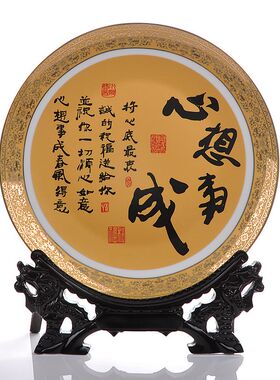 心想事成
将心底最衷
誠的祝福送给你
並祝你一切順心如意
心想事成春風得意